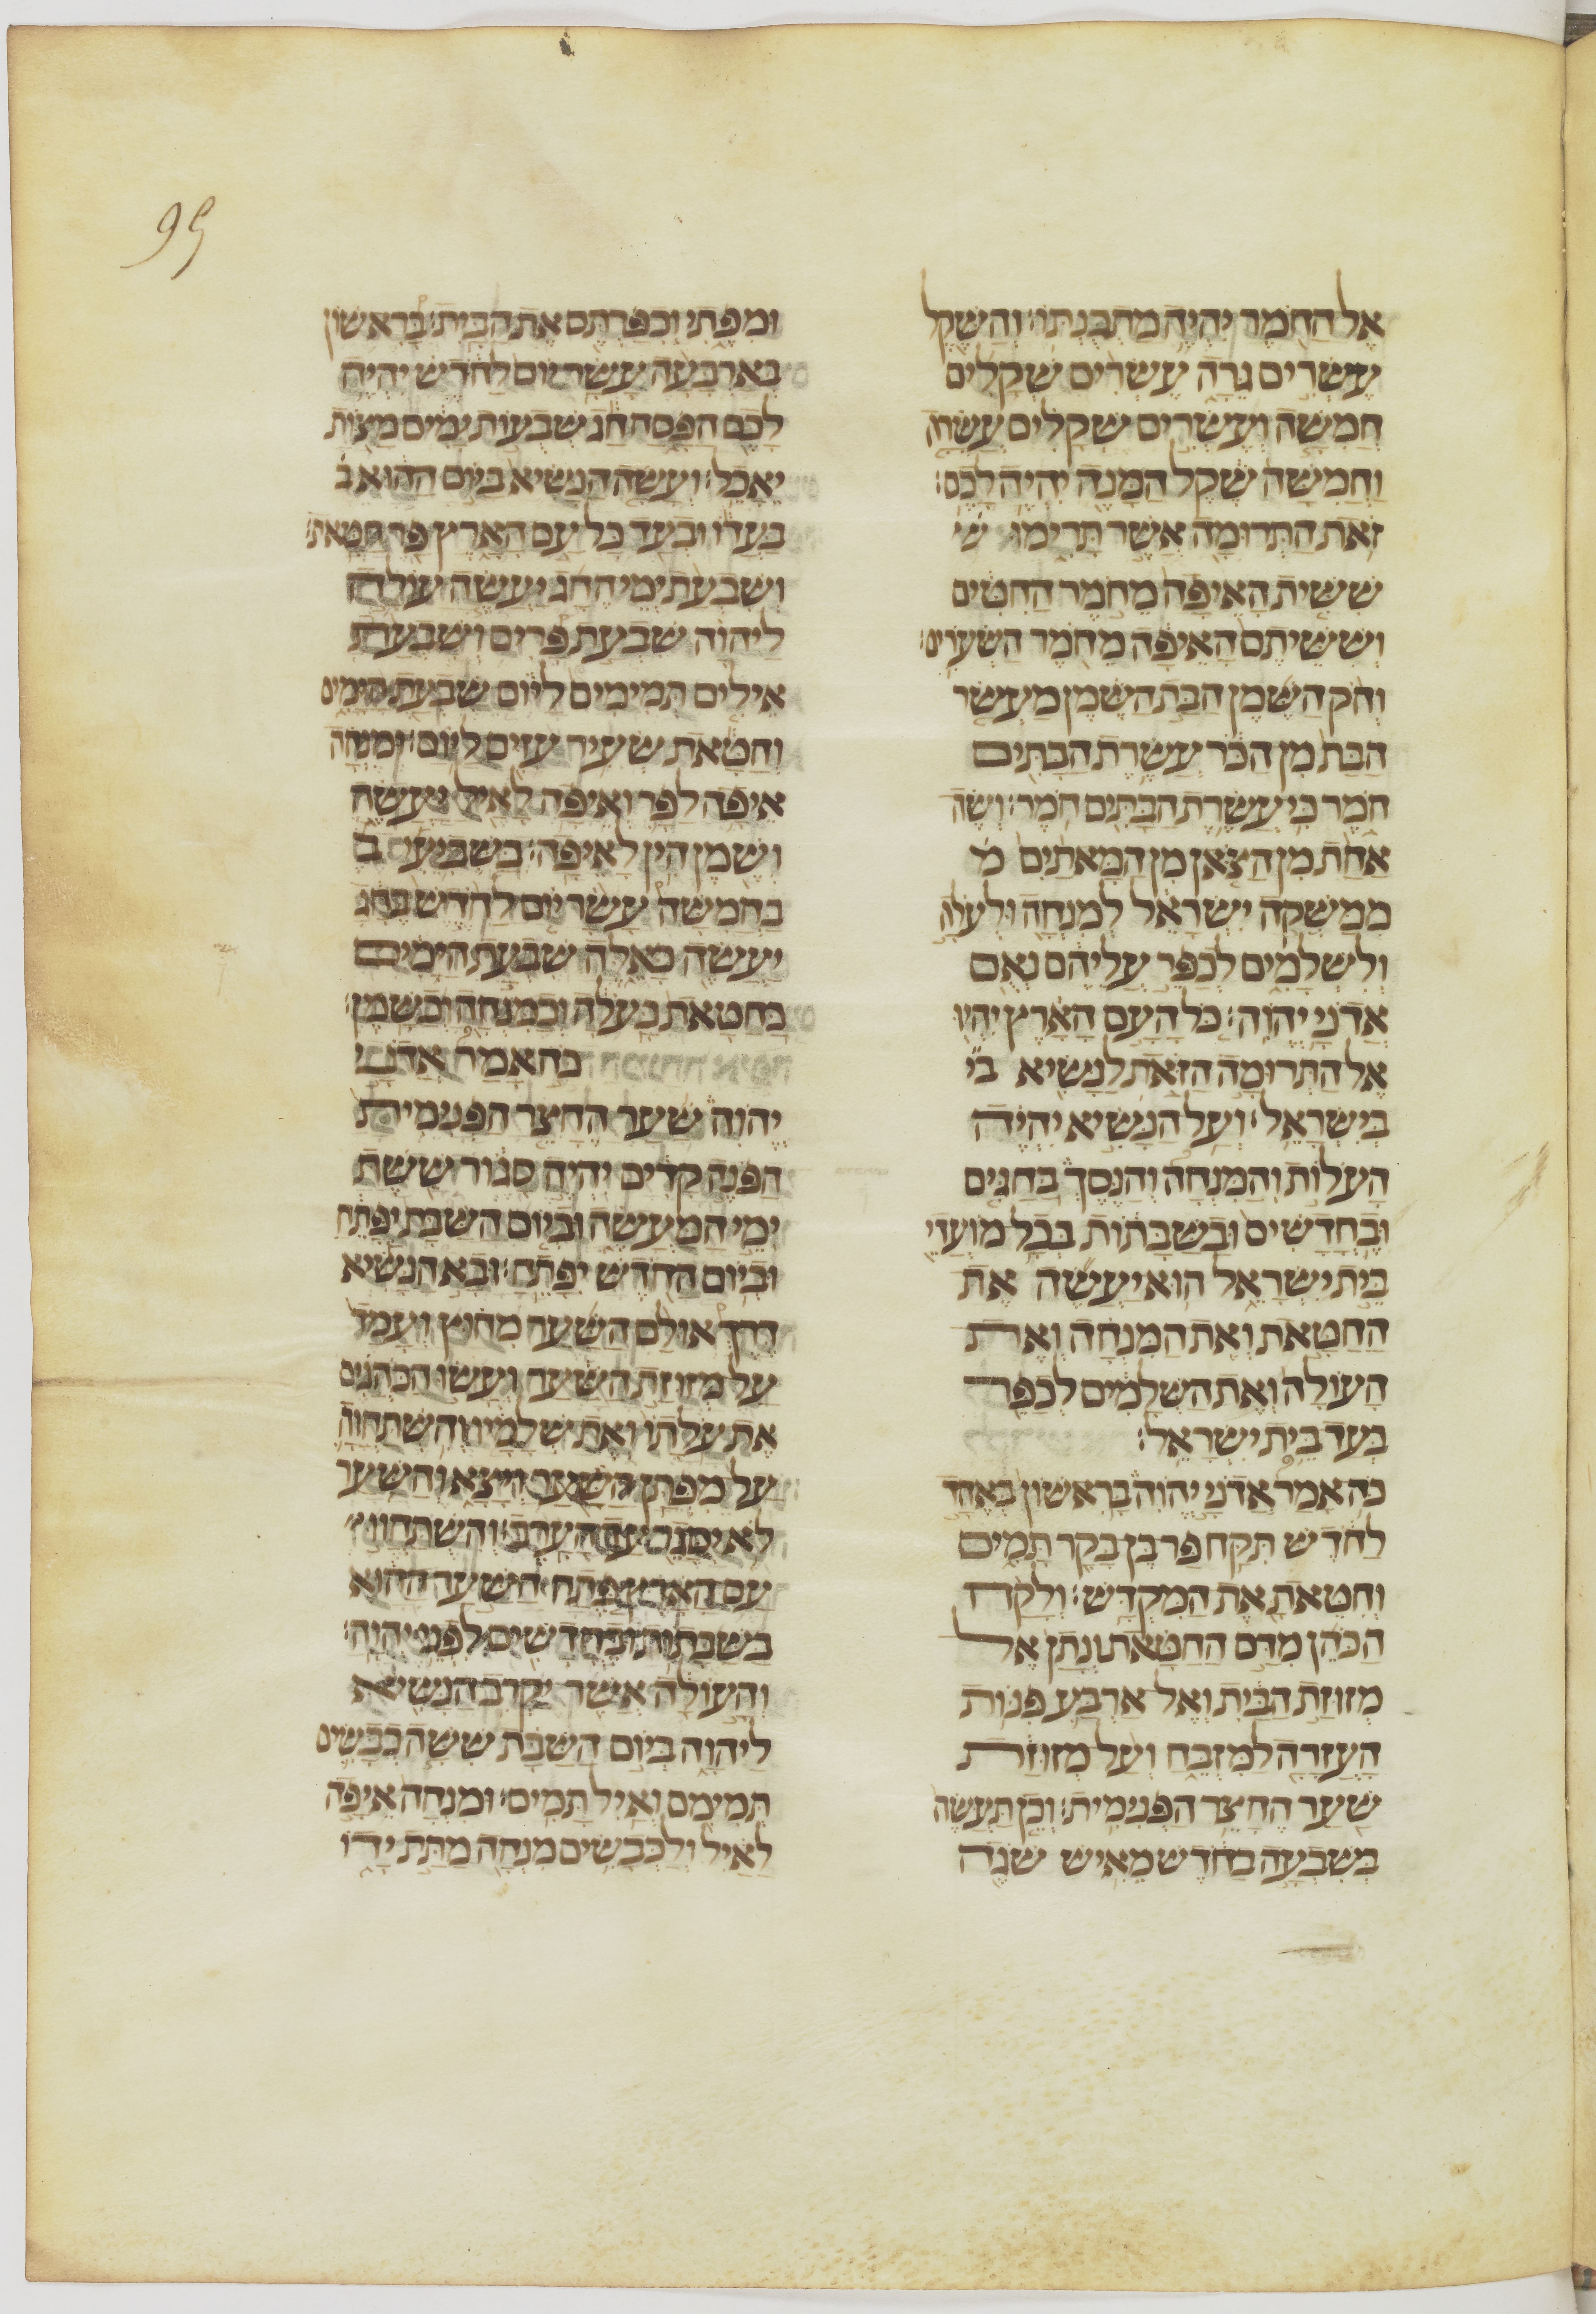 95
אֶל הַחֹמֶר יִהְיֶה מַתְכֻּנְתּוֹ׃ וְהַשֶּׁקֶל
עֶשְׂרִים גֵּרָה עֶשְׂרִים שְׁקָלִים
חֲמִשָּׁה וְעֶשְׂרִים שְׁקָלִים עֲשָׂרָה
וַחֲמִשָּׁה שֶׁקֶל הַמָּנֶה יִהְיֶה לָכֶם׃
זֹאת הַתְּרוּמָה אֲשֶׁר תָּרִימוּ שׁ
שִׁשִּׁית הָאֵיפָה מֵחֹמֶר הַחִטִּים
וְשִׁשִּׁיתֶם הָאֵיפָה מֵחֹמֶר הַשְּׂעֹרִים׃
וְחֹק הַשֶּׁמֶן הַבַּת הַשֶּׁמֶן מַעְשַׂר
הַבַּת מִן הַכֹּר עֲשֶׂרֶת הַבַּתִּים
חֹמֶר כִּי עֲשֶׂרֶת הַבַּתִּים חֹמֶר׃ וְשֶׂה
אַחַת מִן הַצֹּאן מִן הַמָּאתַיִם מ
מִמַּשְׁקֵה יִשְׂרָאֵל לְמִנְחָה וּלְעוֹלָה
וְלִשְׁלָמִים לְכַפֵּר עֲלֵיהֶם נְאֻם
אֲדֹנָי יְהוִֹה׃ כֹּל הָעָם הָאָרֶץ יִהְיוּ
אֶל הַתְּרוּמָה הַזֹּאת לַנָּשִׂיא בי
בְּיִשְׂרָאֵל׃ וְעַל הַנָּשִׂיא יִהְיֶה
הָעֹלוֹת וְהַמִּנְחָה וְהַנֶּסֶךְ בַּחַגִּים
וּבֶחֳדָשִׁים וּבַשַּׁבָּתוֹת בְּכָל מוֹעֲדֵי
בֵּית יִשְׂרָאֵל הוּא יַעֲשֶׂה אֶת
הַחַטָּאת וְאֶת הַמִּנְחָה וְאֶת
הָעוֹלָה וְאֶת הַשְּׁלָמִים לְכַפֵּר
בְּעַד בֵּית יִשְׂרָאֵל׃
כֹּה אָמַר אֲדֹנָי יְהוִֹה בָּרִאשׁוֹן בְּאֶחָד
לַחֹדֶשׁ תִּקַּח פַּר בֶּן בָּקָר תָּמִים
וְחִטֵּאתָ אֶת הַמִּקְדָּשׁ׃ וְלָקַח
הַכֹּהֵן מִדַּם הַחַטָּאת וְנָתַן אֶל
מְזוּזַת הַבַּיִת וְאֶל אַרְבַּע פִּנּוֹת
הָעֲזָרָה לַמִּזְבֵּחַ וְעַל מְזוּזַת
שַׁעַר הֶחָצֵר הַפְּנִימִית׃ וְכֵן תַּעֲשֶׂה
בְּשִׁבְעָה בַחֹדֶשׁ מֵאִישׁ שֹׁגֶה
וּמִפֶּתִי וְכִפַּרְתֶּם אֶת הַבָּיִת׃ בָּרִאשׁוֹן
בְּאַרְבָּעָה עָשָׂר יוֹם לַחֹדֶשׁ יִהְיֶה
לָכֶם הַפָּסַח חָג שְׁבֻעוֹת יָמִים מַצּוֹת
יֵאָכֵל׃ וְעָשָׂה הַנָּשִׂיא בַּיּוֹם הַהוּא ב
בַּעֲדוֹ וּבְעַד כָּל עַם הָאָרֶץ פַּר חַטָּאת׃
וְשִׁבְעַת יְמֵי הֶחָג יַעֲשֶׂה עוֹלָה
לַיהוָֹה שִׁבְעַת פָּרִים וְשִׁבְעַת
אֵילִים תְּמִימִים לַיּוֹם שִׁבְעַת הַיָּמִים
וְחַטָּאת שְׂעִיר עִזִּים לַיּוֹם׃ וּמִנְחָה
אֵיפָה לַפָּר וְאֵיפָה לָאַיִל יַעֲשֶׂה
וְשֶׁמֶן הִין לָאֵיפָה׃ בַּשְּׁבִיעִי ב
בַּחֲמִשָּׁה עָשָׂר יוֹם לַחֹדֶשׁ בֶּחָג
יַעֲשֶׂה כָאֵלֶּה שִׁבְעַת הַיָּמִים
כַּחַטָּאת כָּעֹלָה וְכַמִּנְחָה וְכַשָּׁמֶן׃
כֹּה אָמַר אֲדֹנָי
יְהוִֹה שַׁעַר הֶחָצֵר הַפְּנִימִית
הַפֹּנֶה קָדִים יִהְיֶה סָגוּר שֵׁשֶׁת
יְמֵי הַמַּעֲשֶׂה וּבְיוֹם הַשַּׁבָּת יִפָּתֵחַ
וּבְיוֹם הַחֹדֶשׁ יִפָּתֵחַ׃ וּבָא הַנָּשִׂיא
דֶּרֶךְ אוּלָם הַשַּׁעַר מִחוּץ וְעָמַד
עַל מְזוּזַת הַשַּׁעַר וְעָשׂוּ הַכֹּהֲנִים
אֶת עֹלָתוֹ וְאֶת שְׁלָמָיו וְהִשְׁתַּחֲוָה
עַל מִפְתַּן הַשַּׁעַר וְיָצָא וְהַשַּׁעַר
לֹא יִסָּגֵר עַד הָעָרֶב׃ וְהִשְׁתַּחֲווּ
עַם הָאָרֶץ פֶּתַח הַשַּׁעַר הַהוּא
בַּשַּׁבָּתוֹת וּבֶחֳדָשִׁים לִפְנֵי יְהוָֹה׃
וְהָעוֹלָה אֲשֶׁר יַקְרִב הַנָּשִׂיא
לַיהוָֹה בְּיוֹם הַשַּׁבָּת שִׁשָּׁה כְבָשִׂים
תְּמִימִם וְאַיִל תָּמִים׃ וּמִנְחָה אֵיפָה
לָאַיִל וְלַכְּבָשִׂים מִנְחָה מַתַּת יָדוֹ